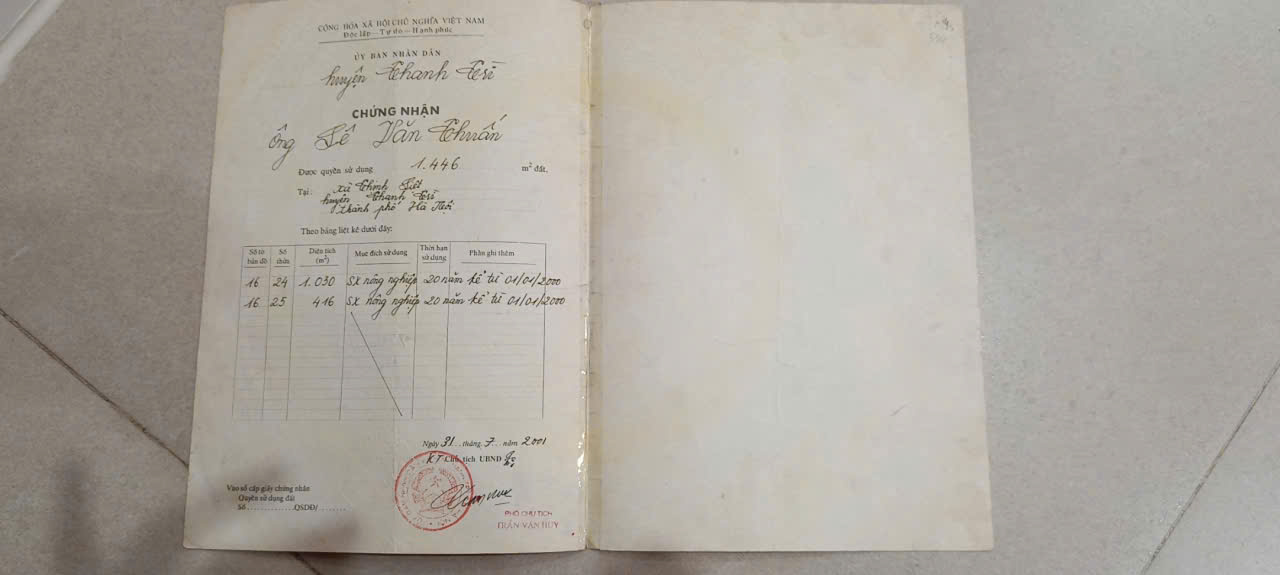 CỘNG HÒA XÃ HỘI CHỦ NGHĨA VIỆT NAM
Độc lập - Tự do - Hạnh phúc
ỦY BAN NHÂN DÂN
huyện Thanh Trì
CHỨNG NHẬN
Ông Lê Văn Thuấn
Được quyền sử dụng 1.446 m² đất,
Tại: xã Thịnh Liệt
huyện Thanh Trì
thành phố Hà Nội
Theo bảng liệt kê dưới đây:
Số tờ bản đồ Số thửa Diện tích (m²) Mục đích sử dụng Thời hạn sử dụng Phần ghi thêm
16 24 1.030 SX nông nghiệp 20 năm kể từ 01/01/2000
16 25 416 SX nông nghiệp 20 năm kể từ 01/01/2000
Ngày 31 tháng 7 năm 2001
KT Chủ tịch UBND
Vào sổ cấp giấy chứng nhận
Quyền sử dụng đất
Số ............ QSDĐ/ ........
PHÓ CHỦ TỊCH
TRẦN VĂN HUY